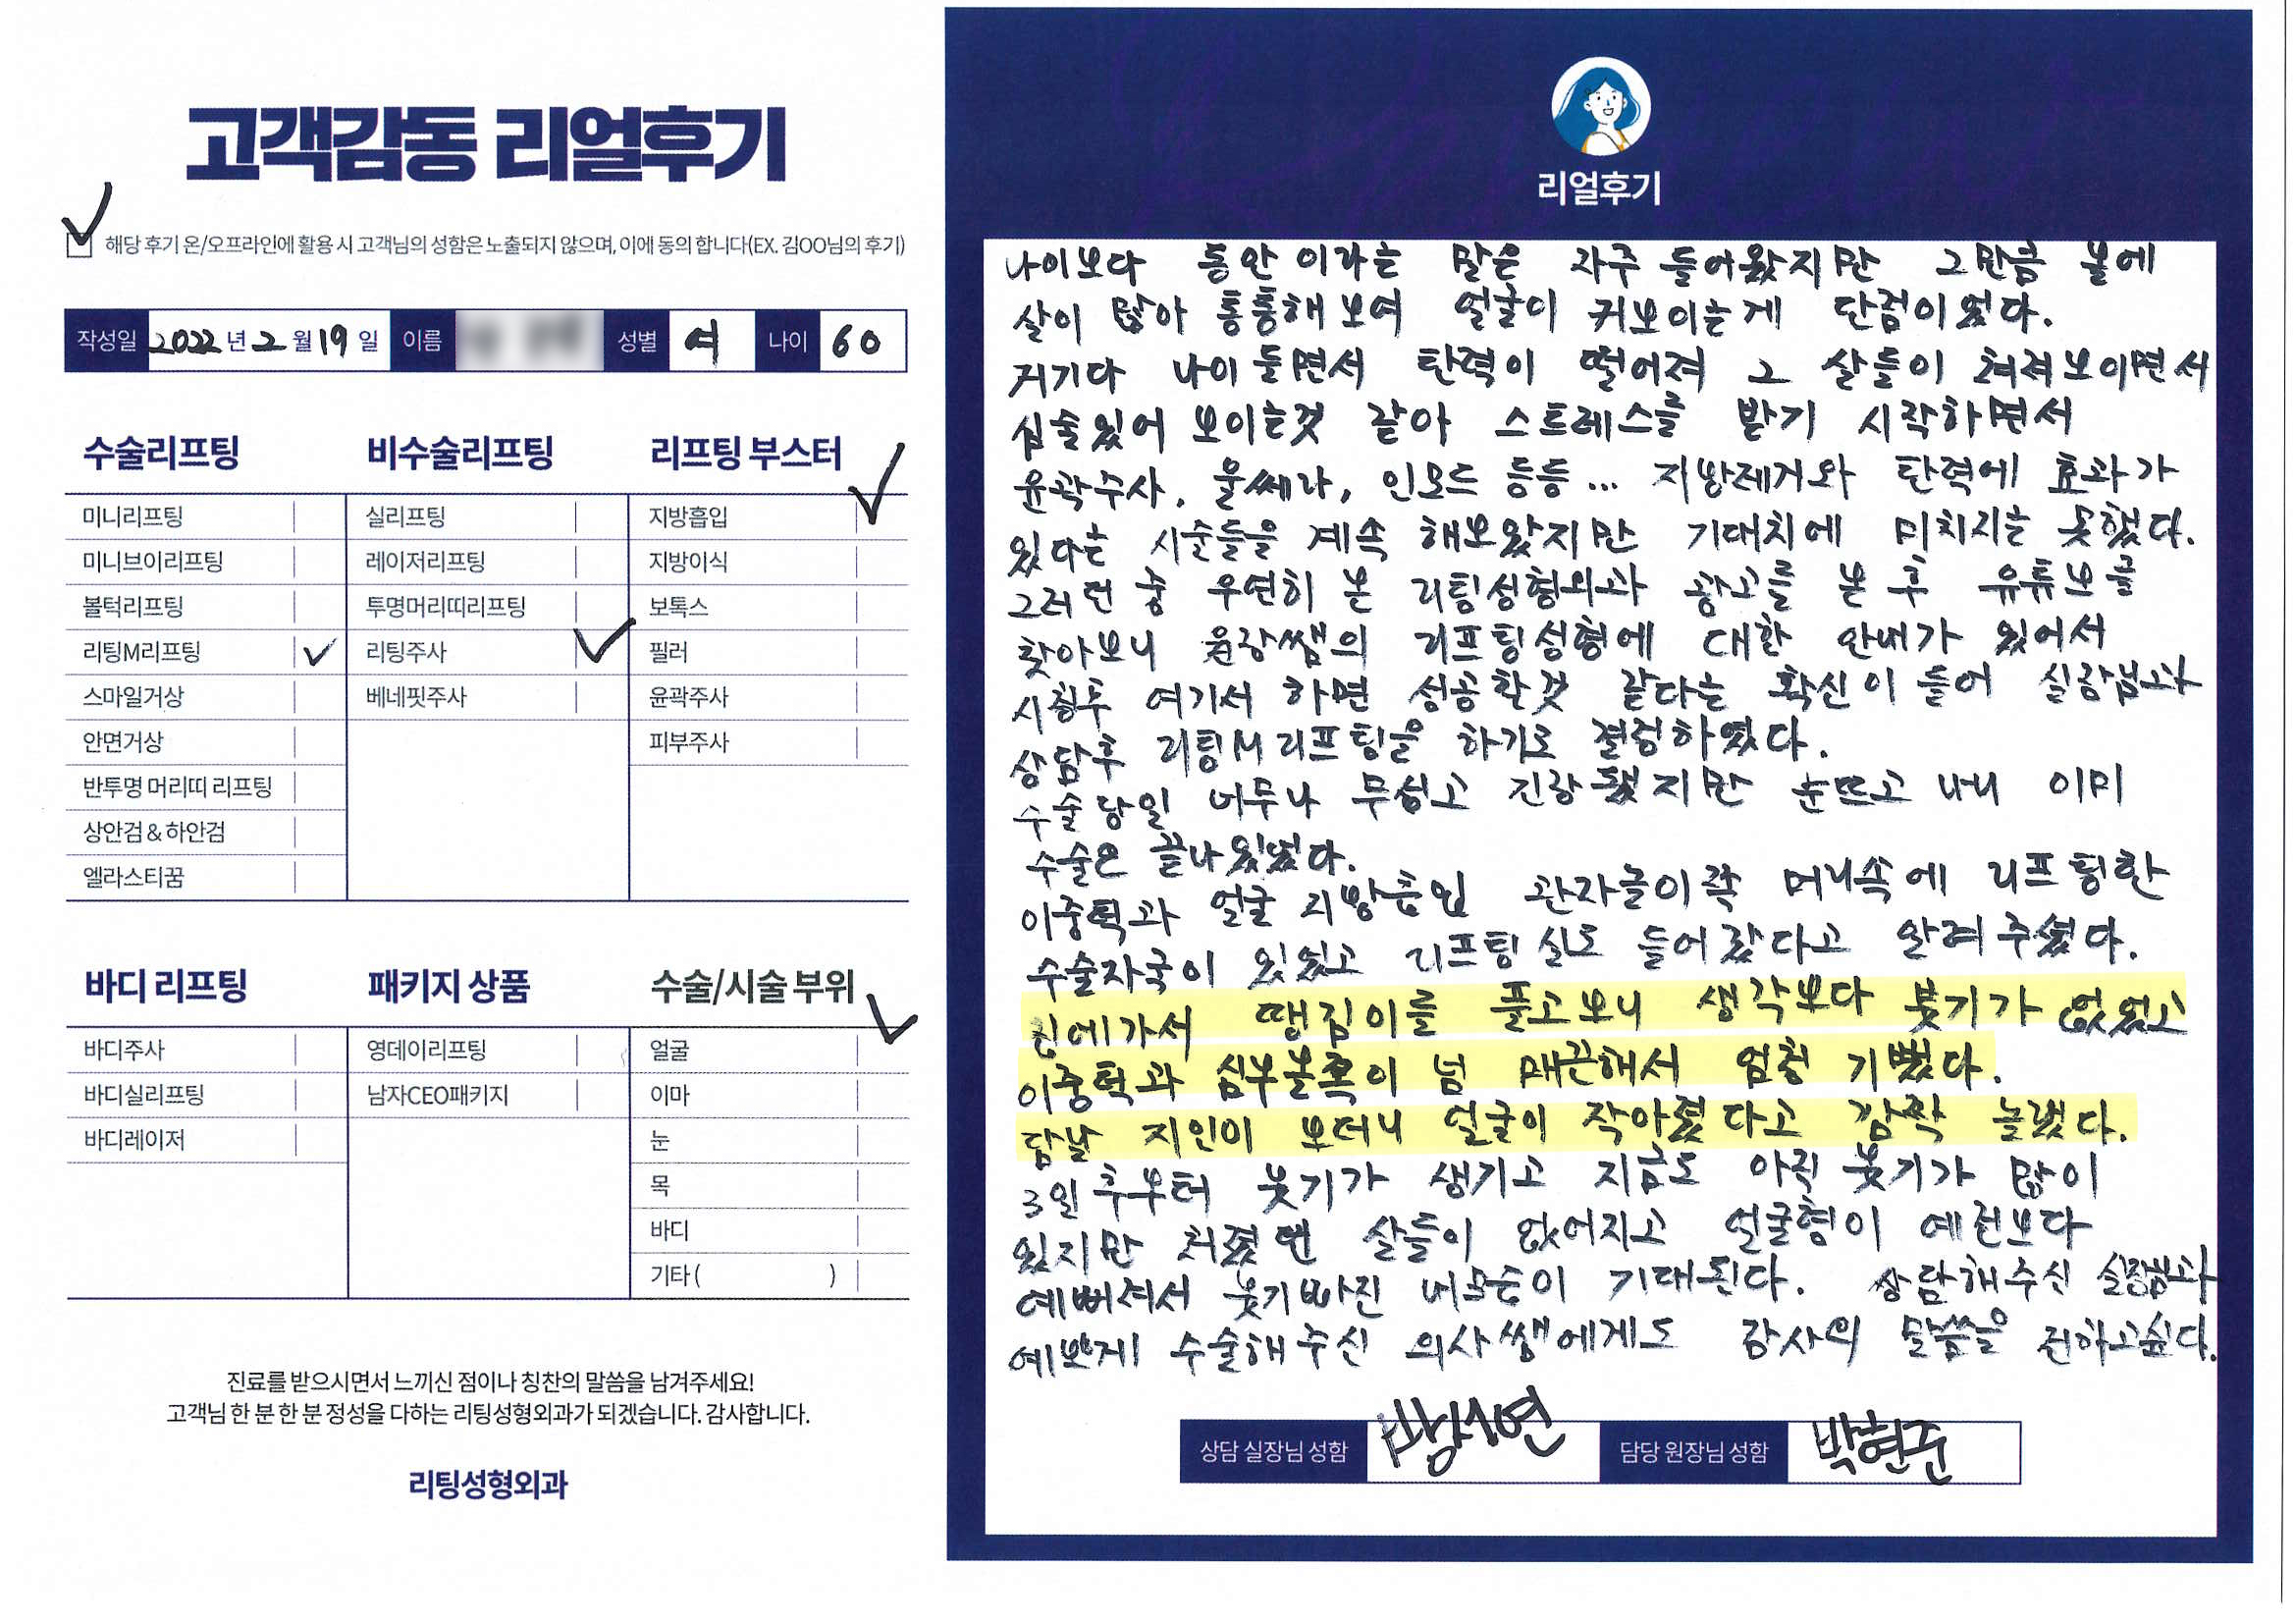 고객감동 리얼후기
해당 후기 온/오프라인에 활용 시 고객님의 성함은 노출되지 않으며, 이에 동의 합니다(EX. 김OO님의 후기)
작성일 2022 년 2 월 19 일 이름 성별 여 나이 60
수술리프팅
미니리프팅
미니브이리프팅
볼턱리프팅
리팅M리프팅
스마일거상
안면거상
반투명 머리띠 리프팅
상안검 & 하안검
엘라스티꿈
비수술리프팅
실리프팅
레이저리프팅
투명머리띠리프팅
리팅주사
베네핏주사
리프팅 부스터
지방흡입
지방이식
보톡스
필러
윤곽주사
피부주사
바디 리프팅
바디주사
바디실리프팅
바디레이저
패키지 상품
영데이리프팅
남자CEO패키지
수술/시술 부위
얼굴
이마
눈
목
바디
기타 ( )
진료를 받으시면서 느끼신 점이나 칭찬의 말씀을 남겨주세요!
고객님 한 분 한 분 정성을 다하는 리팅성형외과가 되겠습니다. 감사합니다.
리팅성형외과
리얼후기
나이보다 동안이라는 말은 자주 들어왔지만 그만큼 볼에
살이 많아 통통해보여 얼굴이 커보이는게 단점이었다.
거기다 나이들면서 탄력이 떨어져 그 살들이 쳐져보이면서
심술있어 보이는것 같아 스트레스를 받기 시작하면서
윤곽주사, 울쎄라, 인모드 등등... 지방제거와 탄력에 효과가
있다는 시술들을 계속 해보았지만 기대치에 미치지는 못했다.
그러던 중 우연히 본 리팅성형외과 광고를 본 후 유튜브를
찾아보니 원장쌤의 리프팅성형에 대한 안내가 있어서
여기서 하면 성공할것 같다는 확신이 들어 실장님과
상담후 리팅M리프팅을 하기로 결정하였다.
수술당일 너무나 무섭고 긴장됐지만 눈뜨고 나니 이미
수술은 끝나있었다.
이중턱과 얼굴 지방흡입 관자놀이쪽 머리속에 리프팅한
수술자국이 있었고 리프팅실도 들어갔다고 알려주셨다.
집에가서 땡김이를 풀고보니 생각보다 붓기가 없었고
이중턱과 심부볼쪽이 넘 매끈해서 엄청 기뻤다.
담날 지인이 보더니 얼굴이 작아졌다고 깜짝 놀랬다.
3일후부터 붓기가 생기고 지금도 아직 붓기가 많이
있지만 쳐졌던 살들이 없어지고 얼굴형이 예전보다
예뻐져서 붓기빠진 내모습이 기대된다. 상담해주신 실장님과
예쁘게 수술해주신 의사쌤에게도 감사의 말씀을 전하고싶다.
상담 실장님 성함 담당 원장님 성함 박현준